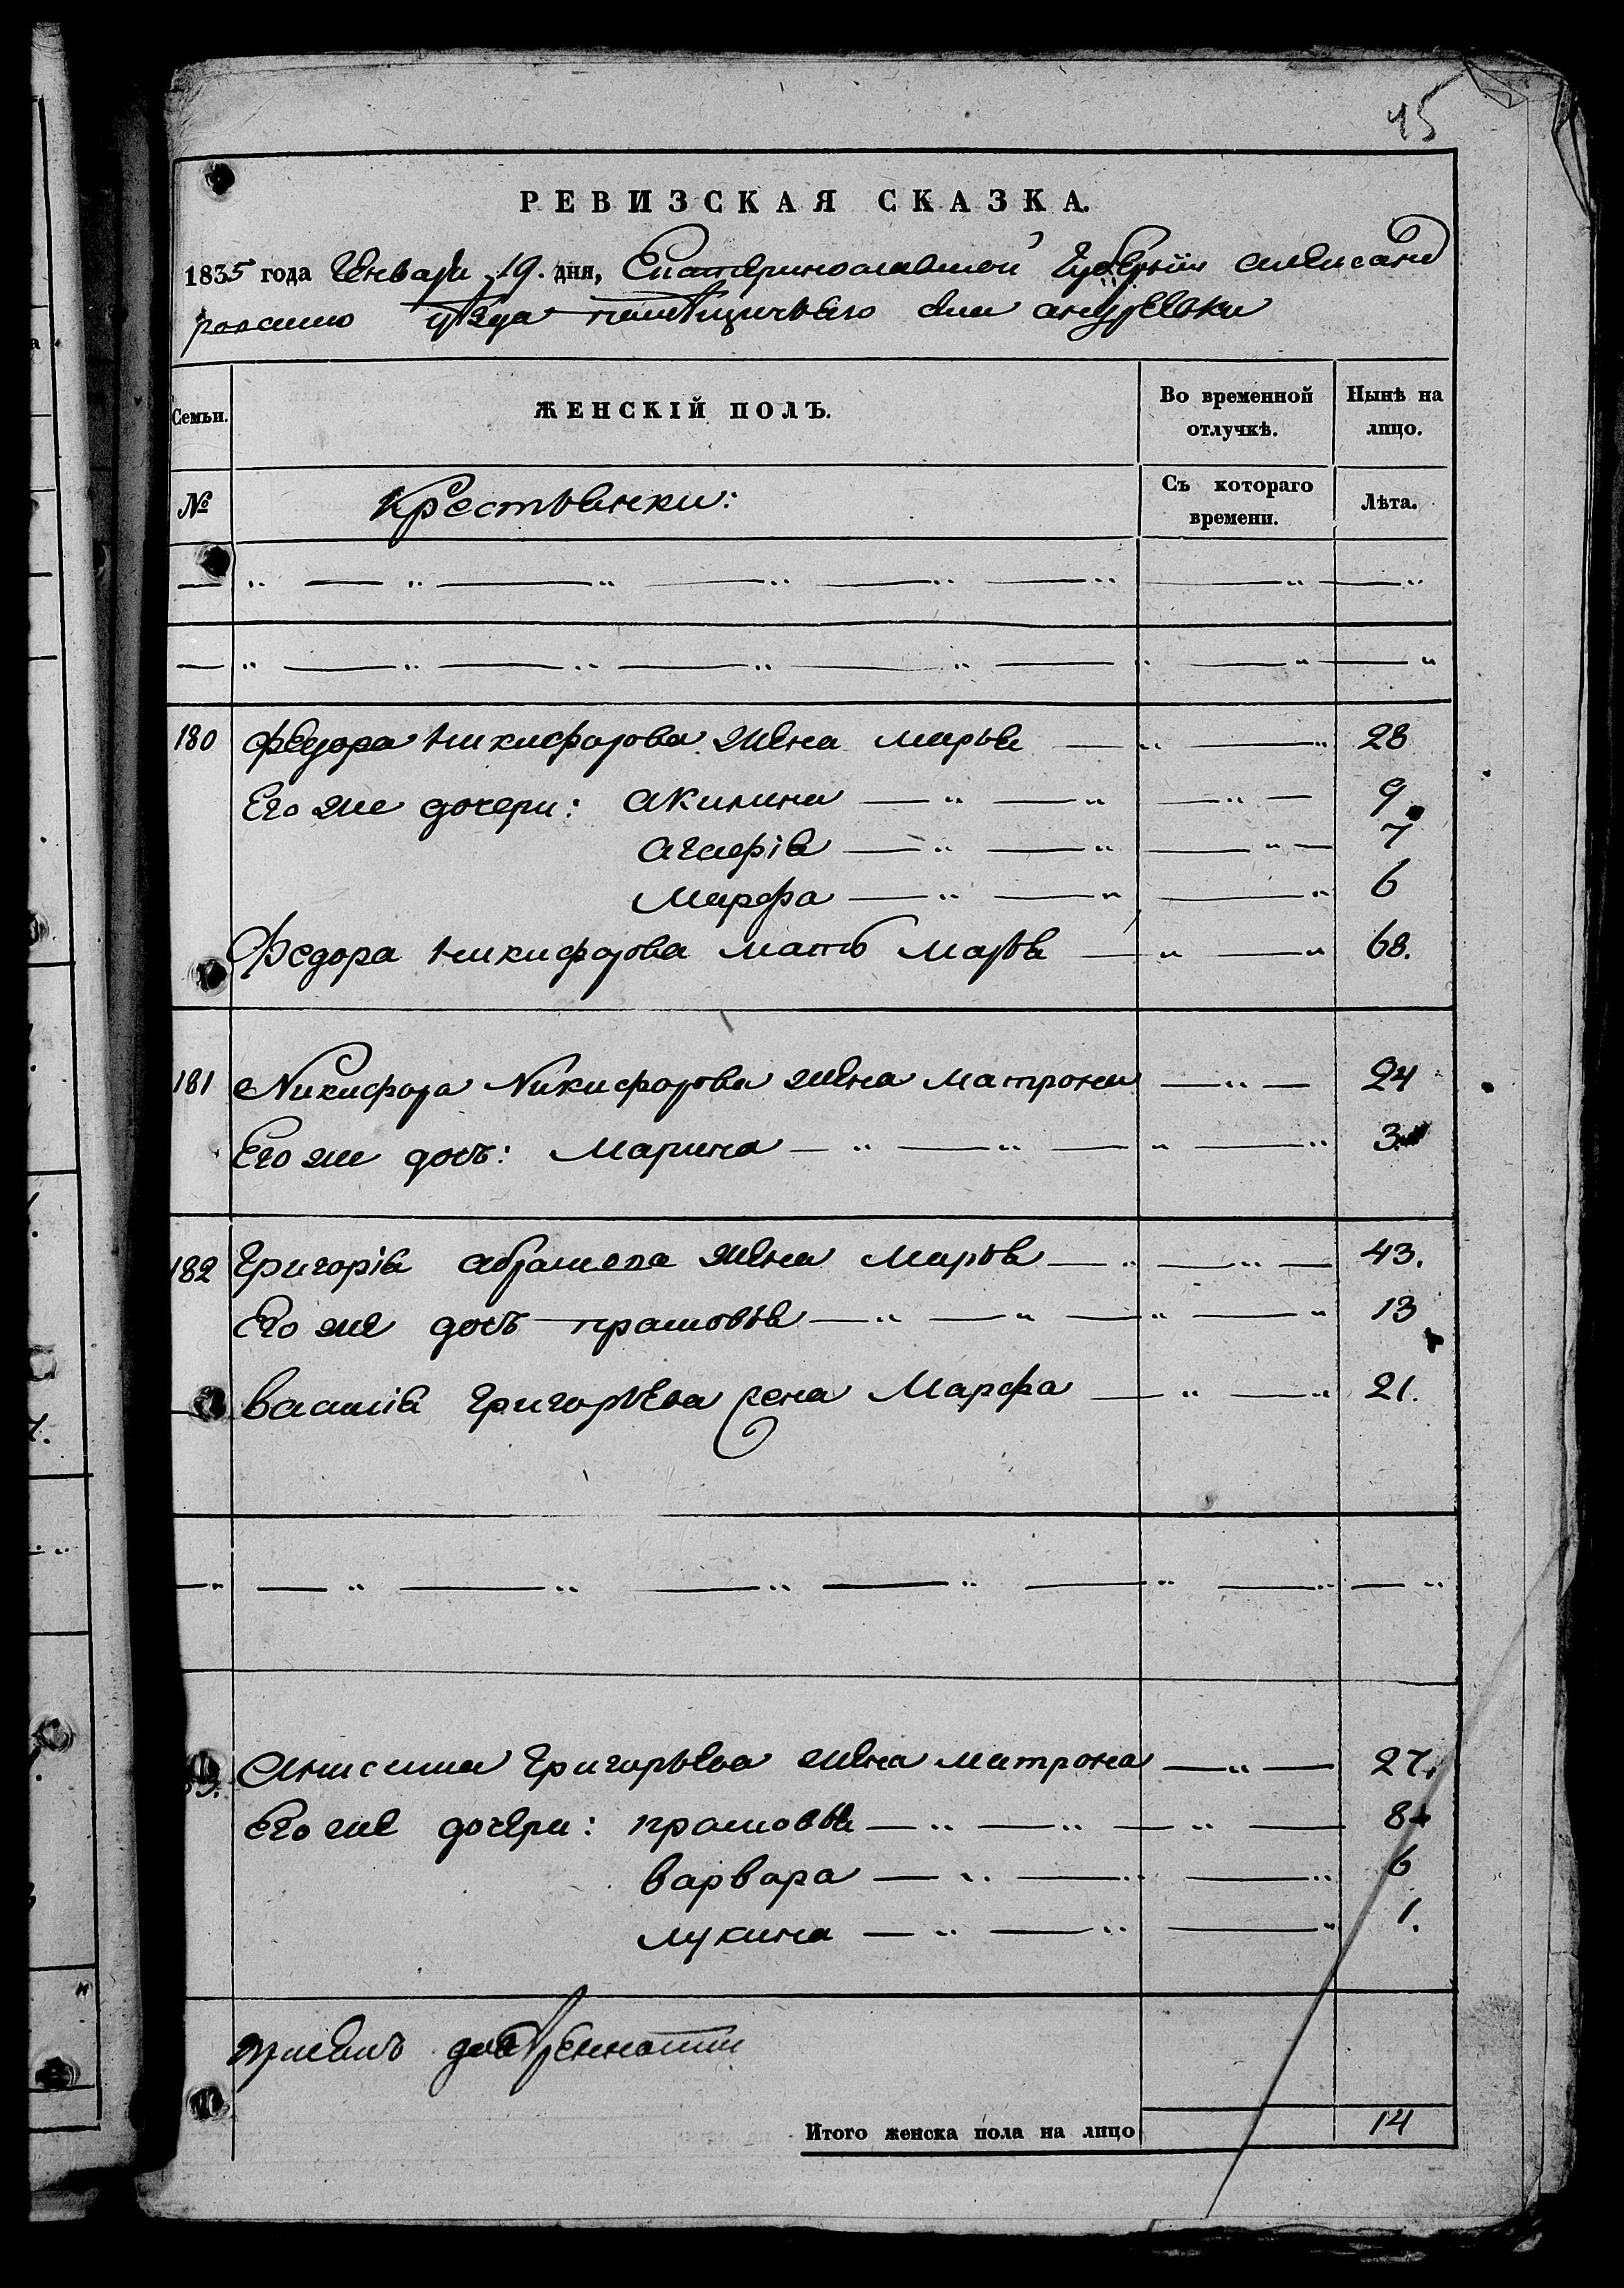 45
РЕВИЗСКАЯ СКАЗКА.
1835 года Генваря 19. дня, Екатеринославской Губерніи Александ
ровскаго уѣзда помѣщичьяго села андреевки
Семьи. ЖЕНСКІЙ ПОЛЪ. Во временной отлучкѣ. Нынѣ на лицо.
№ Крестьянки: Съ котораго времени. Лѣта.
180 Федора Никифорова жена марья 28
Его же дочери: акилина 9
агафія 7
Марфа 6
Федора Никифорова мать марья 68.
181 Никифора Никифорова жена матрона 24
Его же дочь: Марина 3
182 Григорія абрамова жена Марья 43.
Его же дочь прасковья 13
василія Григорьева жена Марфа 21.
Анисима Григорьева жена матрона 27.
Его же дочери: прасковья 8
варвара 6
лукина 1.
Итого женска пола на лицо 14